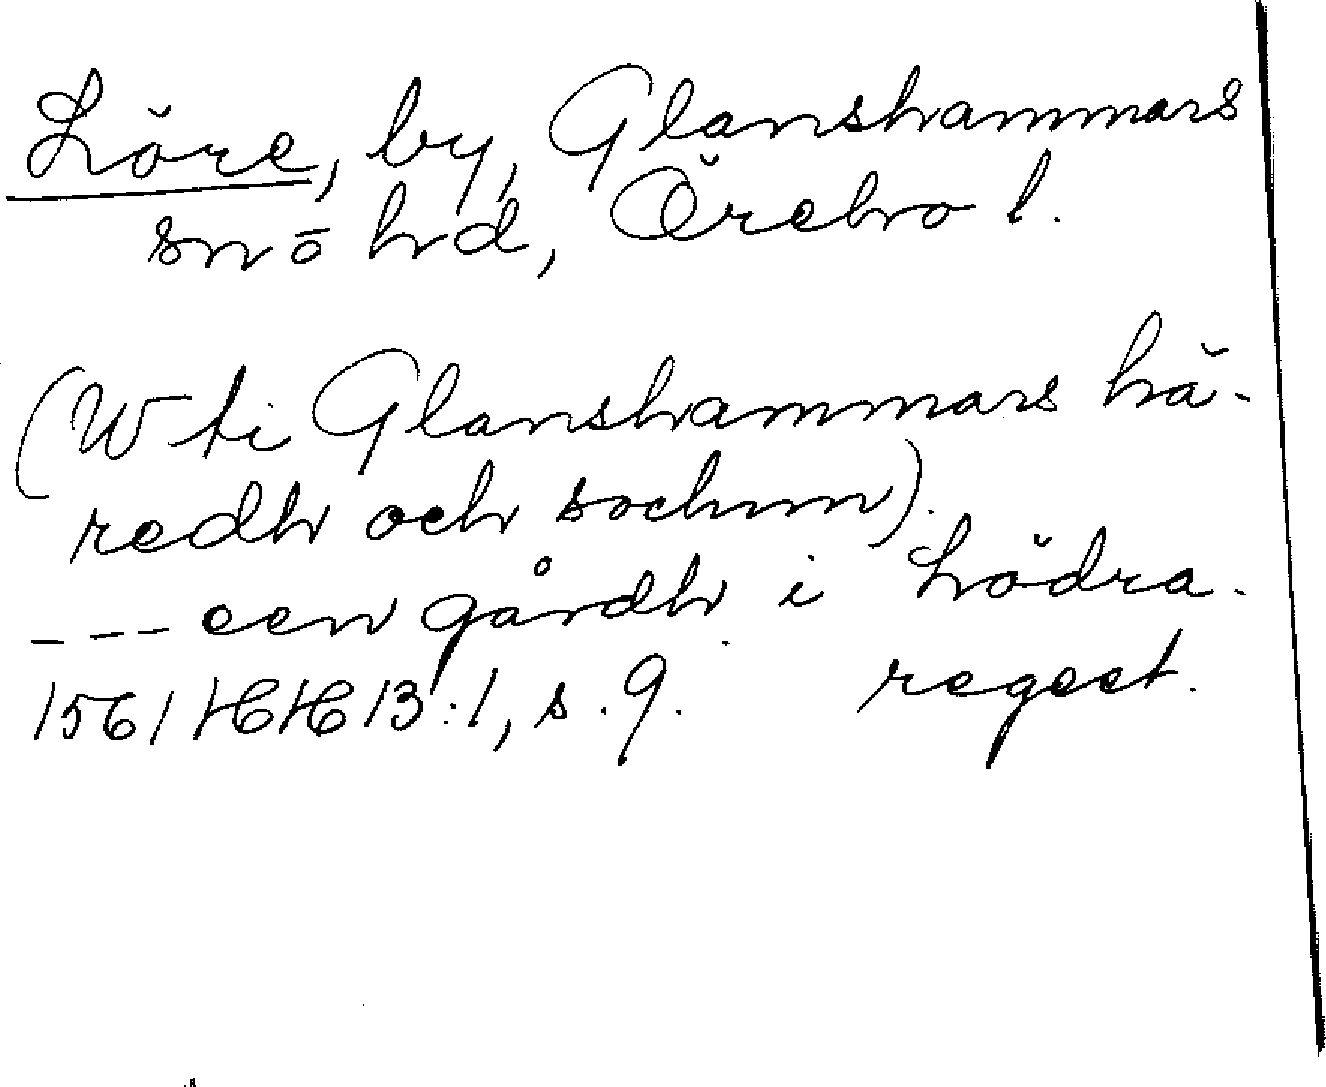 Löre, by, Glanshammars
sn o hd, Örebro l.
(W ti Glanshammars hä-
redh och sochnn).
--- een gårdh i Lödra.
1561 HH 13:1, s. 9. regest.